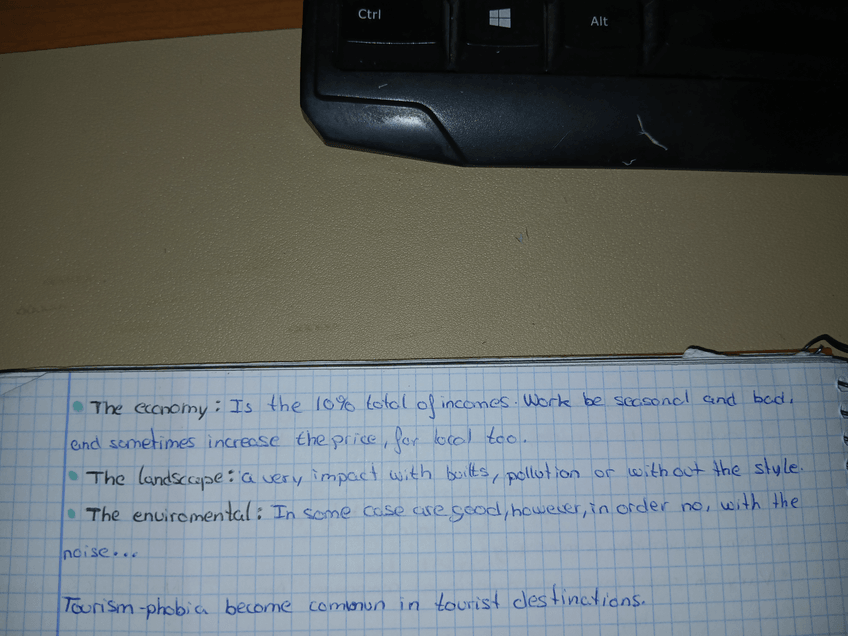 Ctrl
Alt
The economy: Is the 10% total of incomes. Work be seasonal and bad,
and sometimes increase the price, for local too.
The landscape: a very impact with builts, pollution or without the style.
The enviromental: In some case are good, however, in order no, with the
noise...
Tourism-phobia become common in tourist destinations.